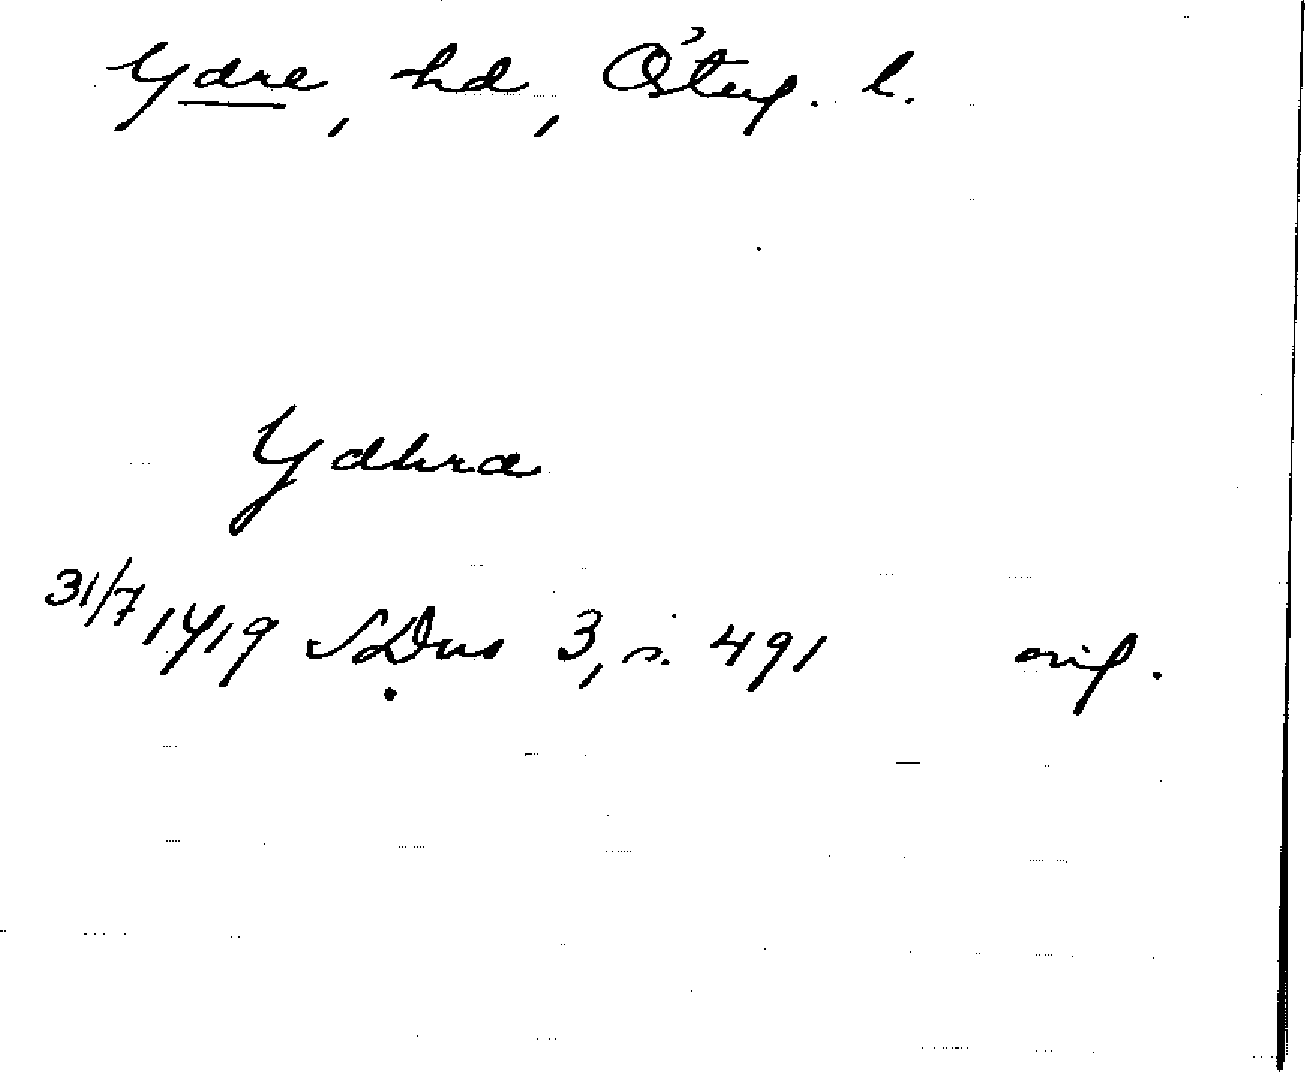 Ydre, hd, Österg. l.
Ydhra
31/7 1419 SDns 3, s. 491 orig.